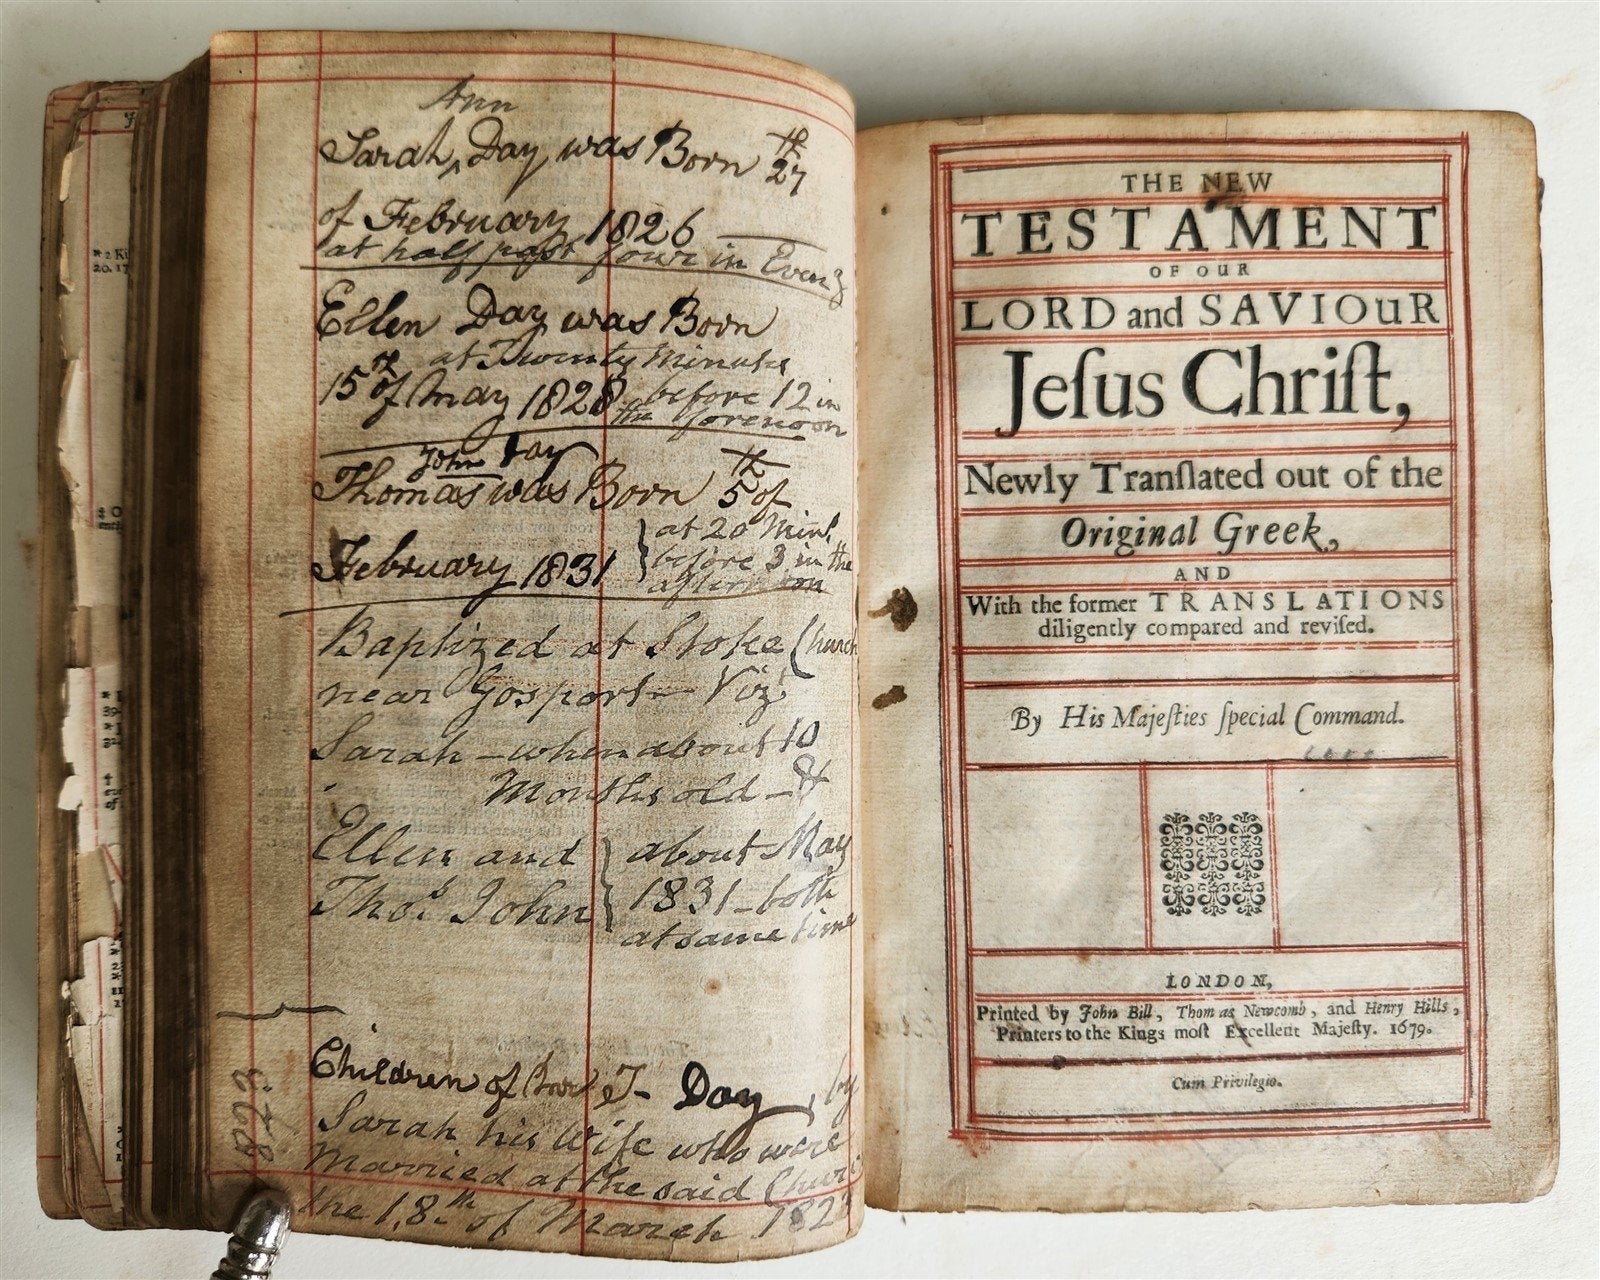 Ann
Sarah ‸ Day was Born 27th
of February 1826
at half past four in Eveng
Ellen Day was Born
at Twenty Minutes
15th of May 1828 before 12 in
the forenoon
John Day
Thomas was Born 5th of
February 1831 } at 20 Mint.
before 3 in the
afternoon
Baptized at Stoke Church
near Gosport - Viz
Sarah - when about 10
Months old - &
Ellen and } about May
Thos. John } 1831 - both
at same time
Children of T- Day, by
Sarah his Wife who were
Married at the said
the 18th of March
THE NEW
TESTAMENT
OF OUR
LORD and SAVIOUR
Jeſus Chriſt,
Newly Tranſlated out of the
Original Greek,
AND
With the former TRANSLATIONS
diligently compared and reviſed.
By His Majeſties ſpecial Command.
LONDON,
Printed by John Bill, Thomas Newcomb, and Henry Hills,
Printers to the Kings moſt Excellent Majeſty. 1679.
Cum Privilegio.